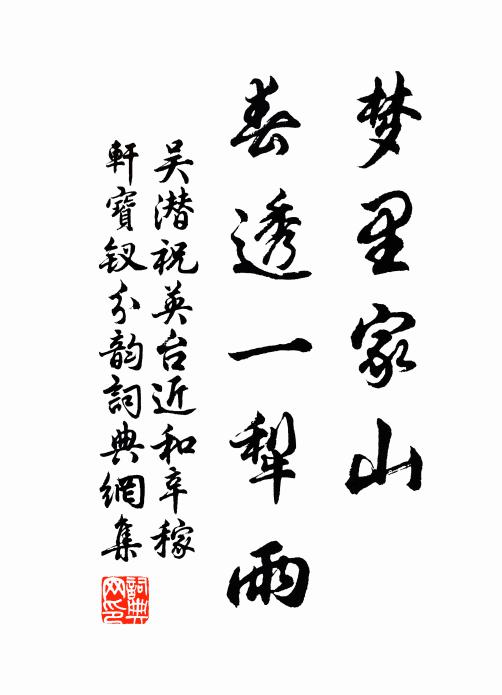 梦里家山
春透一犁雨
吴潜祝英台近和辛稼
軒寶钗分韵詞典網集
詞典网印